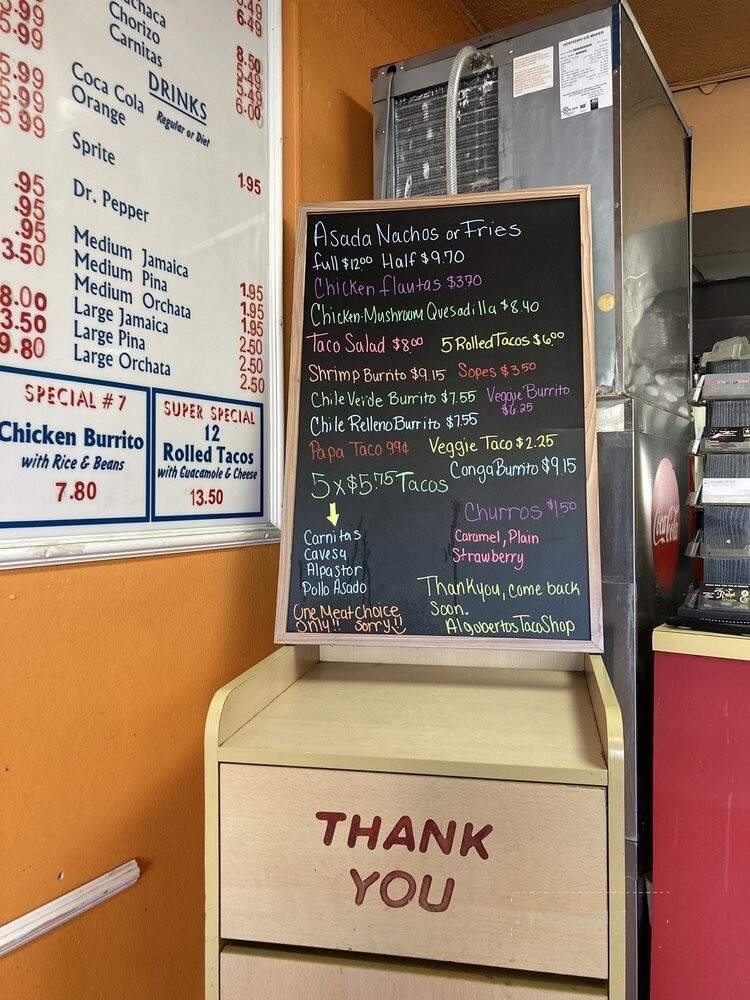 5.99
5.99
5.99
5.99
5.99
.95
.95
.95
3.50
8.00
3.50
9.80
Chorizo
Carnitas
6.49
8.50
5.49
5.49
6.00
DRINKS
Regular or Diet
Coca Cola
Orange
Sprite
1.95
Dr. Pepper
Medium Jamaica 1.95
Medium Pina 1.95
Medium Orchata 1.95
Large Jamaica 2.50
Large Pina 2.50
Large Orchata 2.50
SPECIAL # 7
Chicken Burrito
with Rice & Beans
7.80
SUPER SPECIAL
12
Rolled Tacos
with Guacamole & Cheese
13.50
Asada Nachos or Fries
full $12.00 Half $9.70
Chicken flautas $3.70
Chicken-Mushroom Quesadilla $8.40
Taco Salad $8.00 5 Rolled Tacos $6.00
Shrimp Burrito $9.15 Sopes $3.50
Chile Verde Burrito $7.55 Veggie Burrito
$6.25
Chile Relleno Burrito $7.55
Papa Taco 99¢ Veggie Taco $2.25
5 x $5.75 Tacos Conga Burrito $9.15
Churros $1.50
Carnitas
Cavesa
Alpastor
Pollo Asado
Caramel, Plain
Strawberry
One Meat Choice
Only!! Sorry!!
Thank you, come back
Soon.
Algobertos Taco Shop
Coca-Cola
THANK
YOU